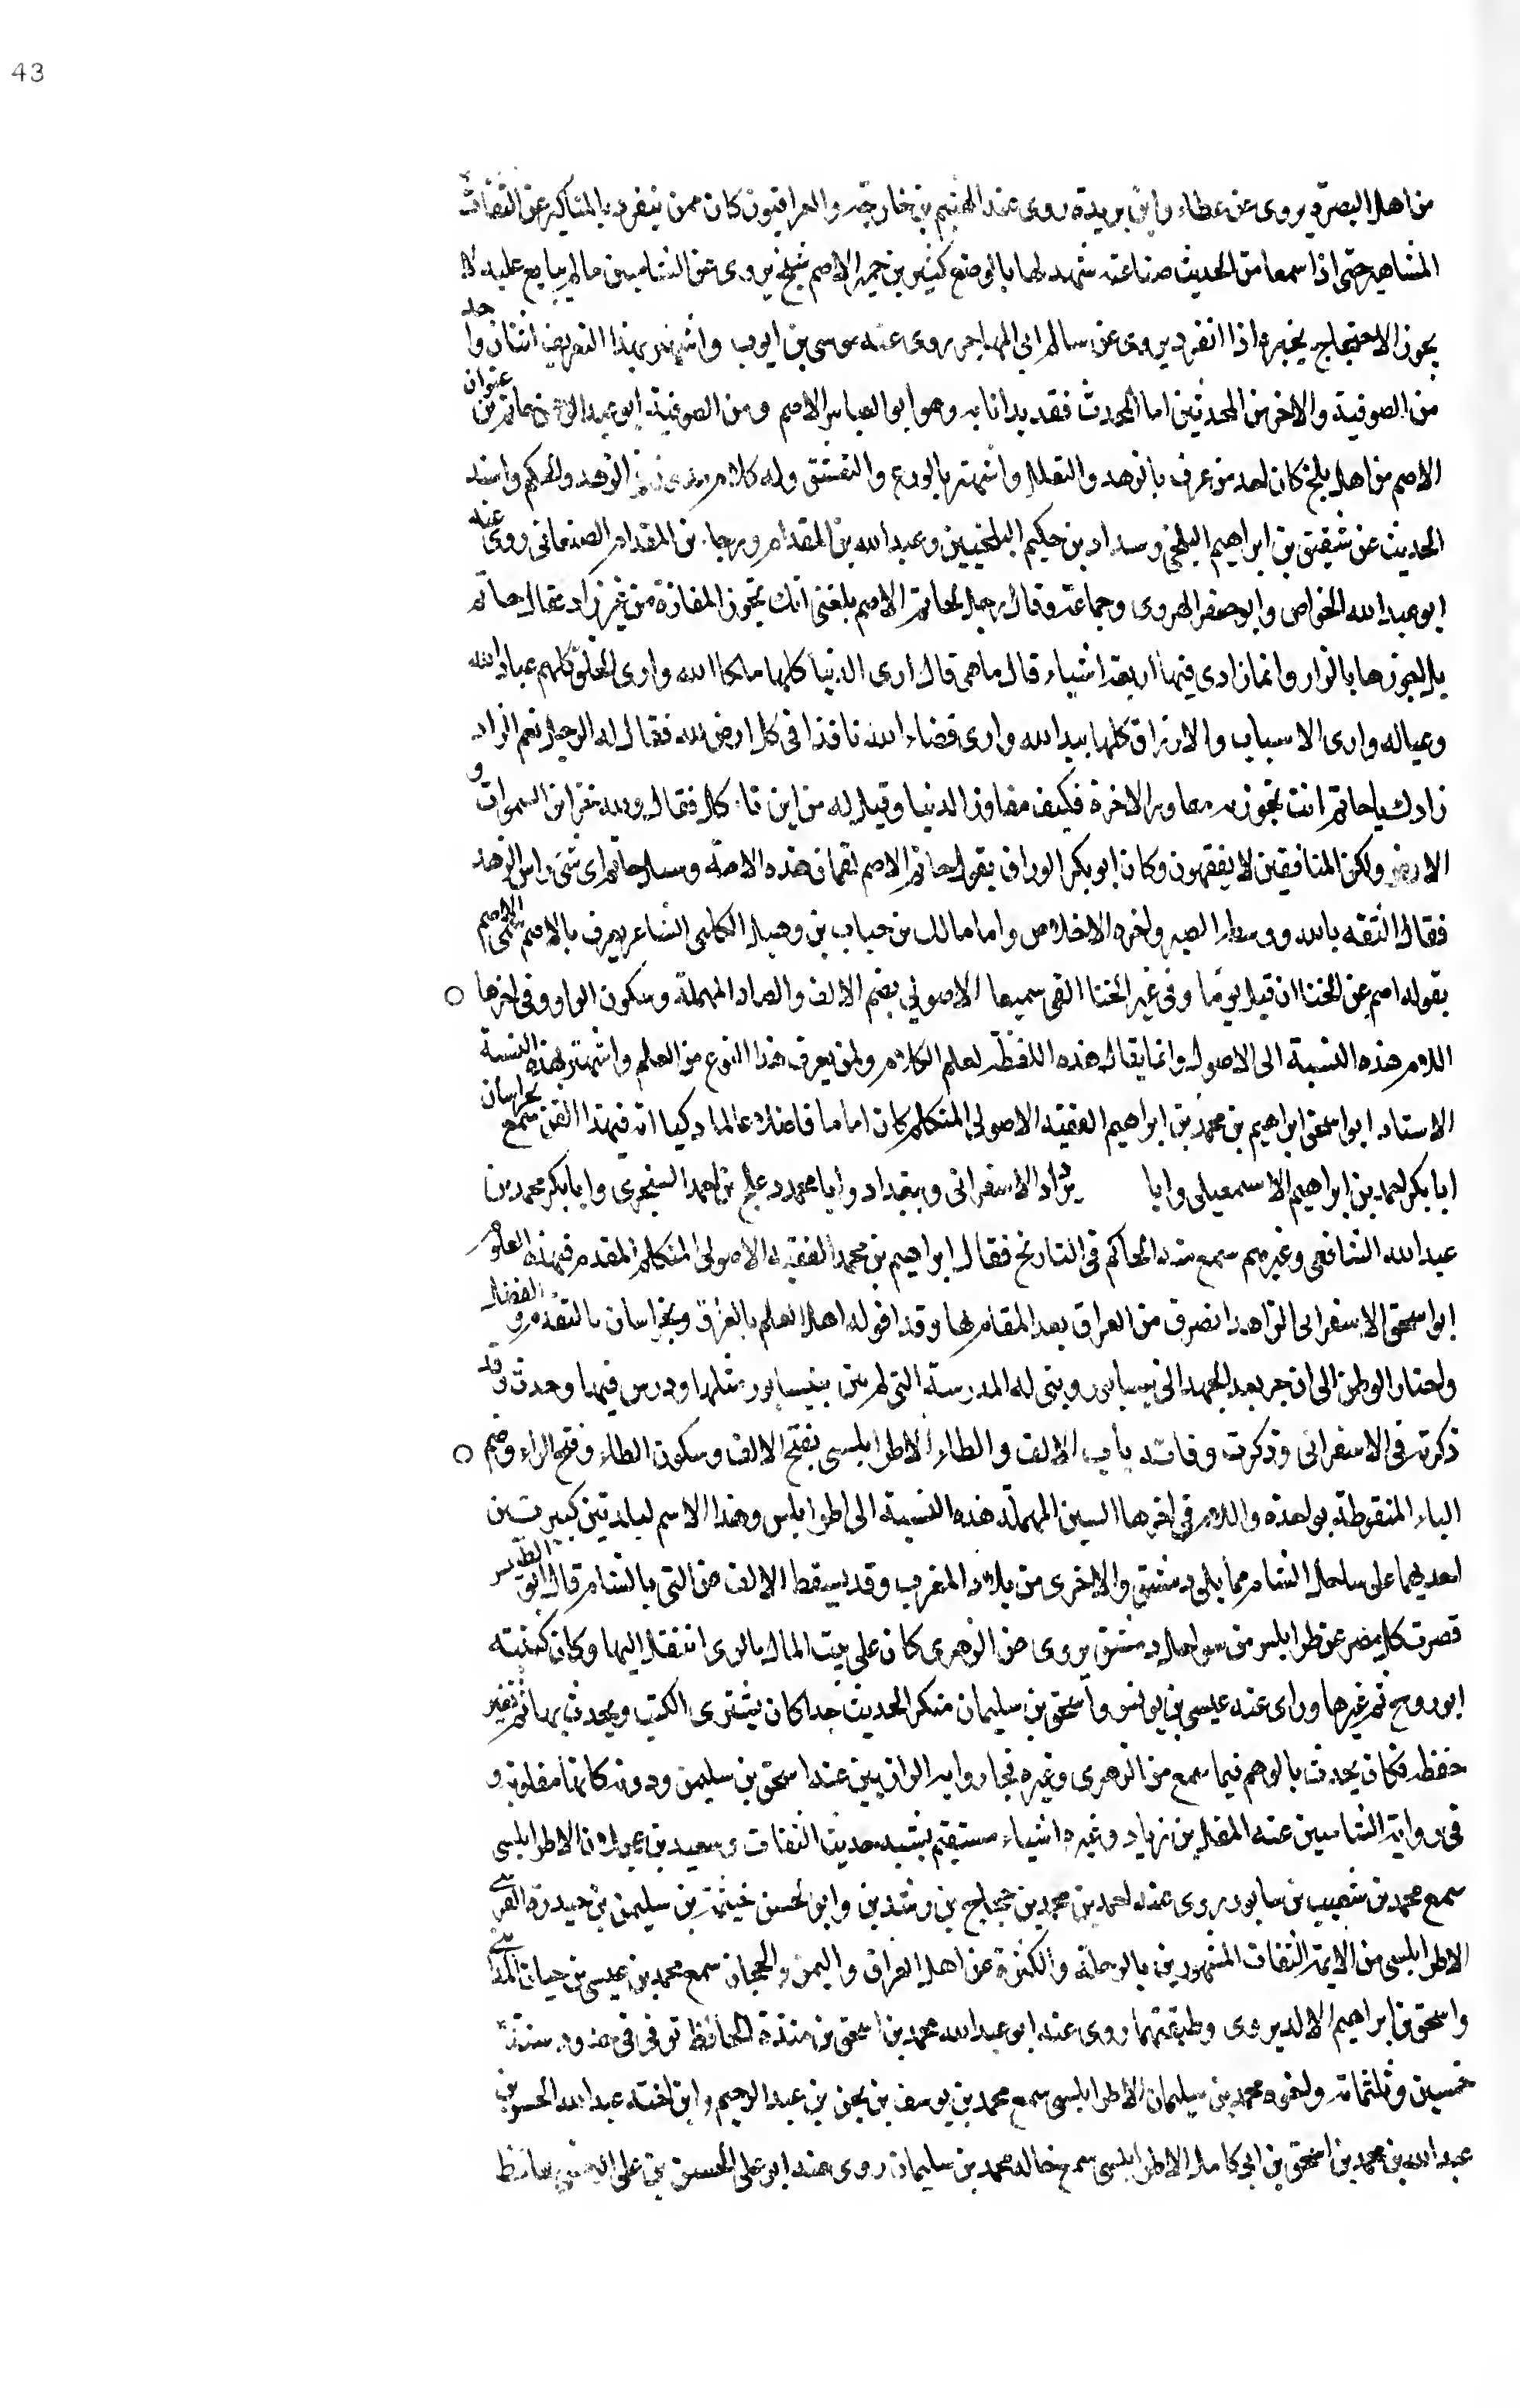 43
من اهل البصرة يروى عن عطاء وابن بريدة روى عنه الهيثم بن خارجه والعراقيون كان ممن ينفرد بالمناكير عن الثقات
المشاهير حتى اذا سمعها من الحديث صناعته شهد لها بالوضع كثير بن حمير الاصم شيخ يروى عن الشاميين ما لم يتابع عليه لا
يجوز الاحتجاج بخبره اذا انفرد يروى عن سالم ابى المهاجر روى عنه موسى بن ايوب واشتهر بهذا التعريف اثنان واحد
من الصوفية والاخر من المحدثين اما المحدث فقد بدانا به وهو ابو العباس الاصم ومن الصوفية ابو عبد الرحمن حاتم بن عنوان
الاصم من اهل بلخ كان احد من عرف بالزهد والتقلل واشتهر بالورع والتقشف وله كلام مدون فى الزهد والحكم واسند
الحديث عن شقيق بن ابراهيم البلخى وسداد بن حكيم البلخيين وعبد الله بن المقدام ورجاء بن المقدام الصنعانى روى عنه
ابو عبد الله الخواص وابو جعفر الهروى وجماعة وقال رجل لحاتم الاصم بلغنى انك تجوز المفازة من غير زاد فقال حاتم
بل اجوزها بالزاد وانما زادى فيها اربعة اشياء قال ما هى قال ارى الدنيا كلها ملكا لله وارى الخلق كلهم عباد الله
وعياله وارى الاسباب والارزاق كلها بيد الله وارى قضاء الله نافذا فى كل ارض لله فقال له الرجل نعم الزاد
زادك يا حاتم انت تجوز به مفاوز الاخرة فكيف مفاوز الدنيا وقيل له من اين تاكل فقال ولله خزاين السموات و
الارض ولكن المنافقين لا يفقهون وكان ابو بكر الوراق يقول حاتم الاصم لقمان هذه الامة وسئل حاتم اى شئ راس الزهد
فقال الثقه بالله ووسطه الصبر واخره الاخلاص واما مالك بن جناب بن وهبل الكلبى الشاعر يعرف بالاصم سمى الاصم
بقوله اصم عن الخنا ان قيل يوما وفى غير الخنا القى سميعا الاصولي بضم الالف والصاد المهملة وسكون الواو وفى اخرها
اللام هذه النسبة الى الاصول وانما يقال هذه اللفظة لعلم الكلام ولمن يعرف هذا النوع من العلم واشتهر بهذه النسبة
الاستاد ابو اسحق ابراهيم بن محمد بن ابراهيم الفقيه الاصولى المتكلم كان اماما فاضلا عالما دكيا انه فى هذا الفن سمع بخراسان
ابا بكر احمد بن ابراهيم الاسمعيلى وابا يزداد الاسفرانى وببغداد وابا محمد دعلج بن احمد السنجرى وابا بكر محمد بن
عبد الله الشافعى وغيرهم سمع منه الحاكم فى التاريخ فقال ابراهيم بن محمد الفقيه الاصولى المتكلم المقدم فى هذه العلوم
ابو اسحق الاسفرانى الزاهد انصرف من العراق بعد المقام بها وقد اقر له اهل العلم بالعراق وبخراسان بالتقدم والفضل
واختار الوطن الى ان جر بعد الجهد الى نيسابور وبنى له المدرسة التى لم يبن بنيسابور مثلها ودرس فيها وحدث وقد
ذكرته فى الاسفرانى وذكرت وفاته باب الالف والطاء الاطرابلسى بفتح الالف وسكون الطاء وفتح الراء وضم
الباء المنقوطة بواحدة واللام فى اخرها السين المهملة هذه النسبة الى اطرابلس وهذا الاسم لبلدتين كبيرتين
احديهما على ساحل الشام مما يلى دمشق والاخرى من بلاد المغرب وقد يسقط الالف من التى بالشام قال ابو الطيب
قصرت كل مصر عن طرابلس من سواحل دمشق يروى عن الزهرى كان على بيت المال بالرى انتقل اليها وكان كنيته
ابو روح ثم غيرها وراى عنه عيسى بن يونس واسحق بن سليمان منكر الحديث جدا كان يشترى الكتب ويحدث بها ثم تغير
حفظه فكان يحدث بالوهم فيما سمع من الزهرى وغيره فجاء رواية الرازيين عنه اسحق بن سليمن ودونه كانها مقلوبه و
فى رواية الشاميين عنه المفضل بن زياد وغيره اشياء مستقيم يشبه حديث الثقات وسعيد بن عجلان الاطرابلسى
سمع محمد بن شعيب بن سابور روى عنه احمد بن محمد بن حجاج بن رشدين وابو الحسن خيثمة بن سليمن بن حيدرة القرشى
الاطرابلسى من الائمة الثقات المشهورين بالرحلة والكثرة عن اهل العراق واليمن والحجاز سمع محمد بن عيسى بن حيان المداينى
واسحق بن ابراهيم الدبرى وطبقتهما روى عنه ابو عبد الله محمد بن اسحق بن مندة الحافظ توفى فى حدود سنة
خمسين وثلثمائة واخوه محمد بن سليمان الاطرابلسى سمع محمد بن يوسف بن بحر بن عبد الرحيم وابن اخته عبد الله الحسين بن
عبد الله بن محمد بن اسحق بن ابى كامل الاطرابلسى سمع خاله محمد بن سليمان روى عنه ابو على الحسين بن على